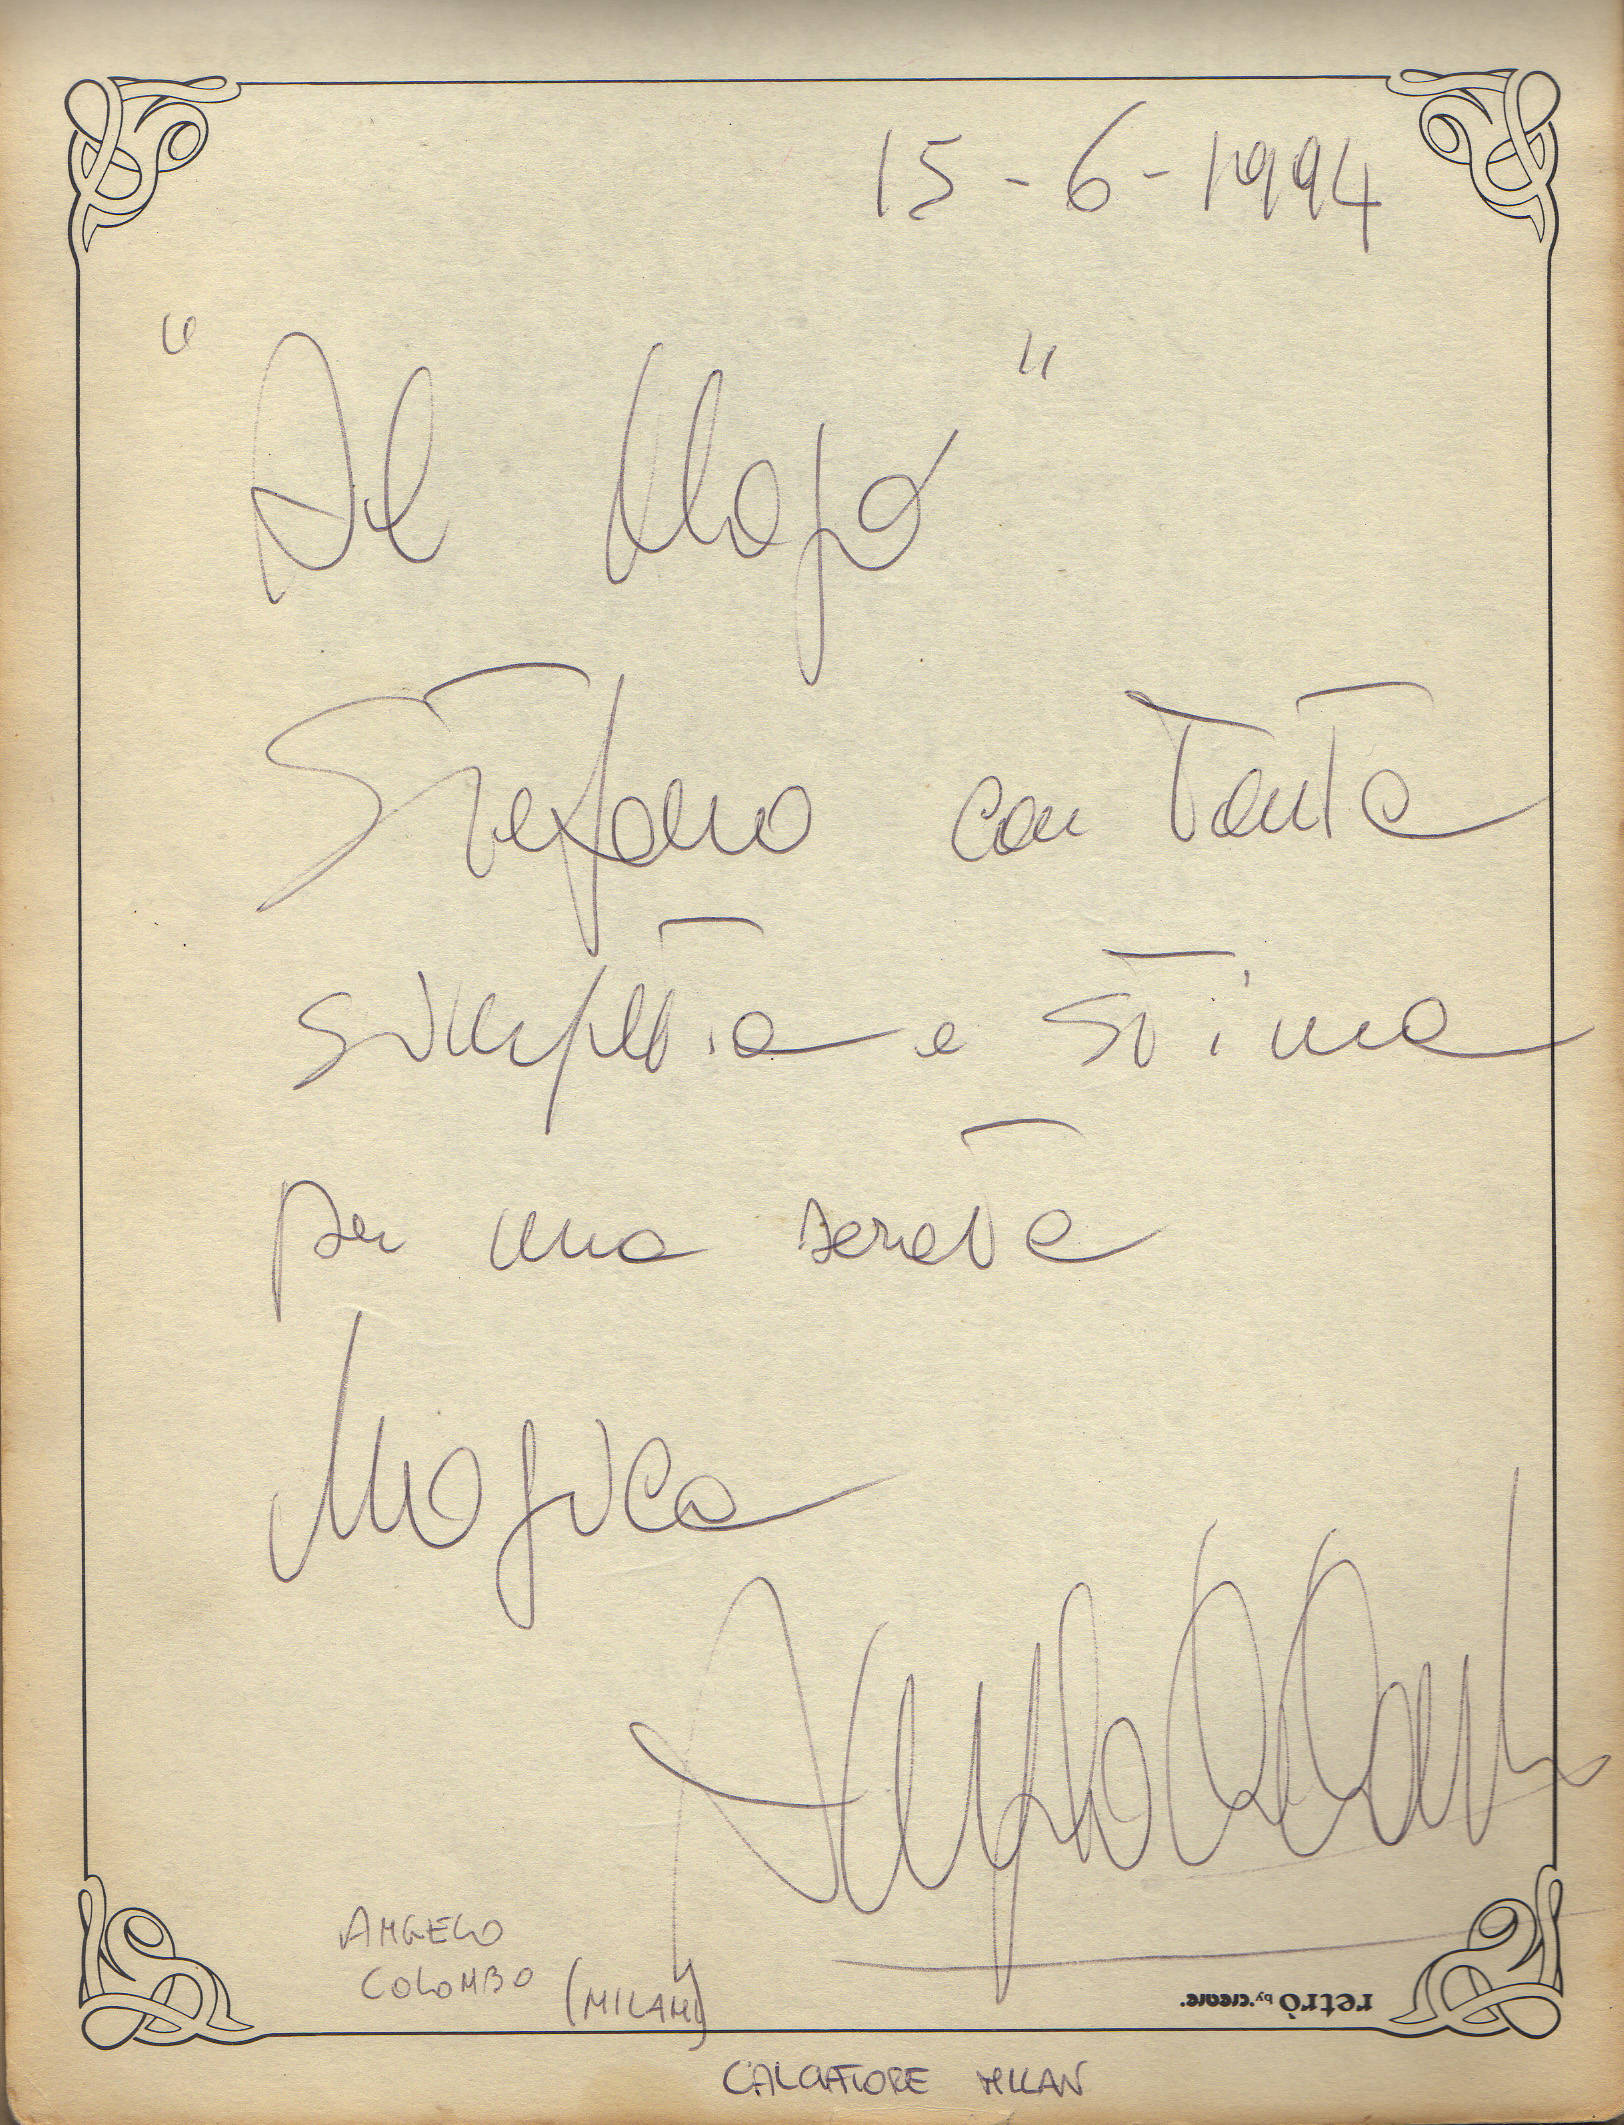 15-6-1994
"Al Mago"
Stefano con tanta
simpatia e stima
per una serata
Magica
Angelo
ANGELO
COLOMBO (MILAN)
retrò by creare.
CALCIATORE MILAN